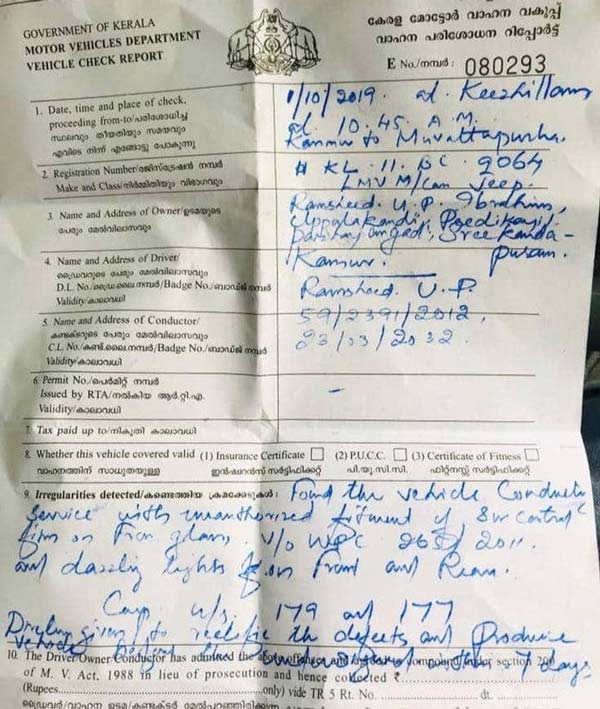 GOVERNMENT OF KERALA
MOTOR VEHICLES DEPARTMENT
VEHICLE CHECK REPORT
കേരള മോട്ടോർ വാഹന വകുപ്പ്
വാഹന പരിശോധന റിപ്പോർട്ട്
E No./നമ്പർ : 080293
1. Date, time and place of check,
proceeding from-to/പരിശോധിച്ച
സ്ഥലവും തീയതിയും സമയവും
എവിടെ നിന്ന് എങ്ങോട്ടു പോകുന്നു
1/10/2019 at Keezhillam
at 10.45 A.M.
Kannur to Muvattupuzha.
2. Registration Number/രജിസ്ട്രേഷൻ നമ്പർ
Make and Class/നിർമ്മിതിയും വിഭാഗവും
KL 11 BC 9064
LMV M/Car Jeep.
3. Name and Address of Owner/ഉടമയുടെ
പേരും മേൽവിലാസവും
Ramsheed. U.P. Ibrahim,
Sreekanda-
puram.
Kannur.
4. Name and Address of Driver/
ഡ്രൈവറുടെ പേരും മേൽവിലാസവും
D.L. No./ഡ്രൈ.ലൈ.നമ്പർ/Badge No./ബാഡ്ജ് നമ്പർ
Validity/കാലാവധി
Ramsheed. U.P.
59/2391/2012,
23/03/2032.
5. Name and Address of Conductor/
കണ്ടക്ടറുടെ പേരും മേൽവിലാസവും
C.L. No./കണ്ട.ലൈ.നമ്പർ/Badge No./ബാഡ്ജ് നമ്പർ
Validity/കാലാവധി
6. Permit No./പെർമിറ്റ് നമ്പർ
Issued by RTA/നൽകിയ ആർ.റ്റി.എ.
Validity/കാലാവധി
-
7. Tax paid up to/നികുതി കാലാവധി
8. Whether this vehicle covered valid (1) Insurance Certificate (2) P.U.C.C. (3) Certificate of Fitness
വാഹനത്തിന് സാധുതയുള്ള ഇൻഷുറൻസ് സർട്ടിഫിക്കറ്റ് പി.യു.സി.സി. ഫിറ്റ്നസ്സ് സർട്ടിഫിക്കറ്റ്
9. Irregularities detected/കണ്ടെത്തിയ ക്രമക്കേടുകൾ: Found the vehicle Conducting
Service with unauthorized fitment of Sun Control
film on Fron glass. V/o WPC 265/2011.
and dazzling lights on Front and Rear.
u/s. 179 and 177
given to rectify the defects and Produce
vehicle 7 days
10. The Driver/Owner/Conductor has admitted the above offences and compound under section 200
of M. V. Act, 1988 in lieu of prosecution and hence collected ₹
(Rupees only) vide TR 5 Rt. No. dt.